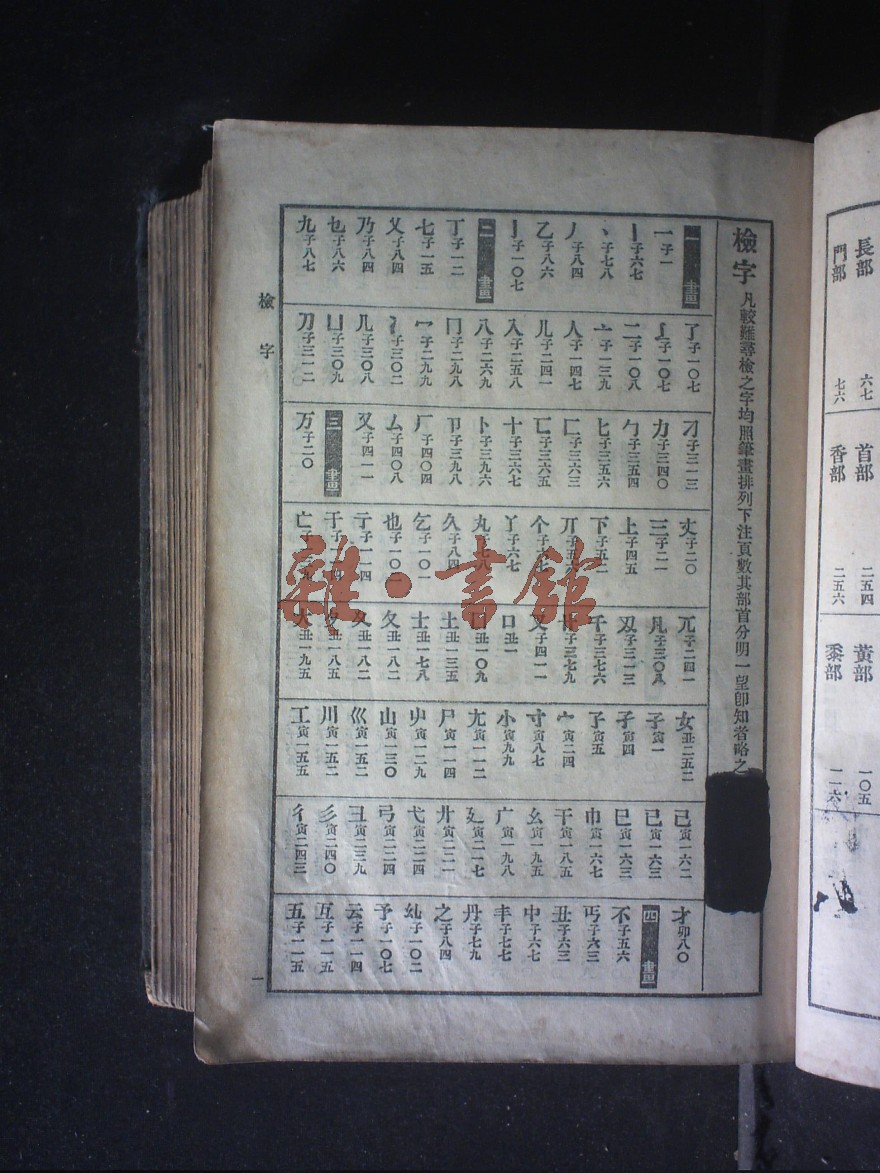 檢字 凡較難尋檢之字均照筆畫排列下注頁數其部首分明一望卽知者略之
一畫
一子一
丨子六七
丶子七八
丿子八四
乙子八六
亅子一〇七
二畫
丁子一二
七子一五
乂子八四
乃子八四
乜子八六
九子八七
了子一〇七
子一〇七
二子一〇八
亠子一三九
人子一四七
儿子二四一
入子二五八
八子二六九
冂子二九八
冖子二九九
冫子三〇二
几子三〇八
凵子三〇九
刀子三一二
刁子三一三
力子三四〇
勹子三五四
匕子三五六
匚子三六三
匸子三六五
十子三六七
卜子三九六
卩子三九八
厂子四〇四
厶子四〇八
又子四一一
三畫
万子二〇
丈子二〇
三子二一
上子四五
下子五二
丌子五六
个子六七
丫子六七
丸子七八
久子八四
乞子一〇一
也子一〇一
亍子一一四
于子一一四
亡子
兀子二四一
凡子三〇八
刄子三一三
千子三七六
子三七九
叉子四一一
口丑一
囗丑一〇九
土丑一三五
士丑一七八
夂丑一八二
夊丑一八二
夕丑一八五
大丑一九五
女丑二五二
子寅一
孑寅四
孒寅五
宀寅二四
寸寅八七
小寅九九
尢寅一一二
尸寅一一四
屮寅一二九
山寅一三〇
巛寅一五二
川寅一五二
工寅一五五
己寅一六二
已寅一六三
巳寅一六三
巾寅一六七
干寅一八五
幺寅一九五
广寅一九八
廴寅二一七
廾寅二二一
弋寅二二四
弓寅二二四
彑寅二三九
彡寅二四〇
彳寅二四三
才卯八〇
四畫
不子五六
丐子六三
丑子六三
中子六七
丰子七七
丹子七九
之子八四
乣子一〇二
予子一〇七
云子一一四
互子一一五
五子一一五
檢字
一
長部 六七
門部 七六
首部 二五四
香部 二五六
黃部 一〇五
黍部 一一六
雜·書館